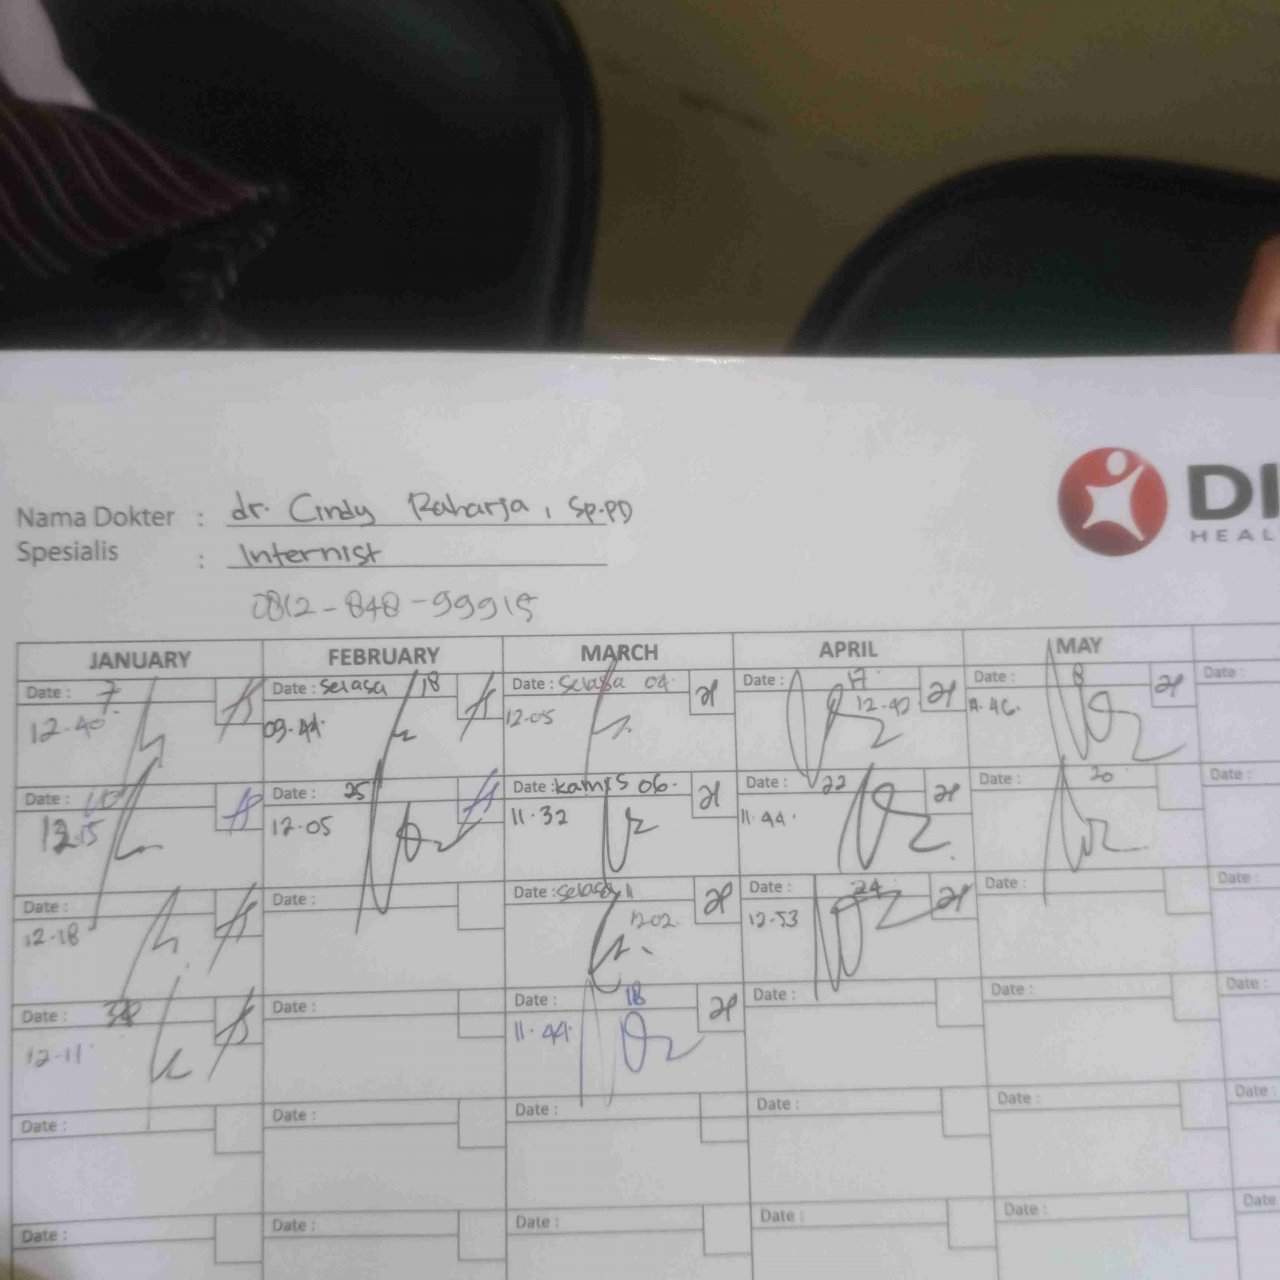 Nama Dokter : dr. Cindy Raharja, Sp.PD
Spesialis : Internist
0812-848-99915
DI
HEAL
JANUARY FEBRUARY MARCH APRIL MAY
Date : 7 Date : selasa 18 Date : selasa 04 Date : 17 Date : 8 Date :
12.40 09.44 12.05 12.42 46
Date : 10 Date : 25 Date : kamis 06 Date : 22 Date : 20 Date :
12.15 12.05 11.32 11.44
Date : Date : Date : selasa 11 Date : 24 Date : Date :
12.18 1202 12.53
Date : Date : Date : 18 Date : Date : Date :
12.11 11.44
Date : Date : Date : Date : Date : Date :
Date : Date : Date : Date : Date : Date